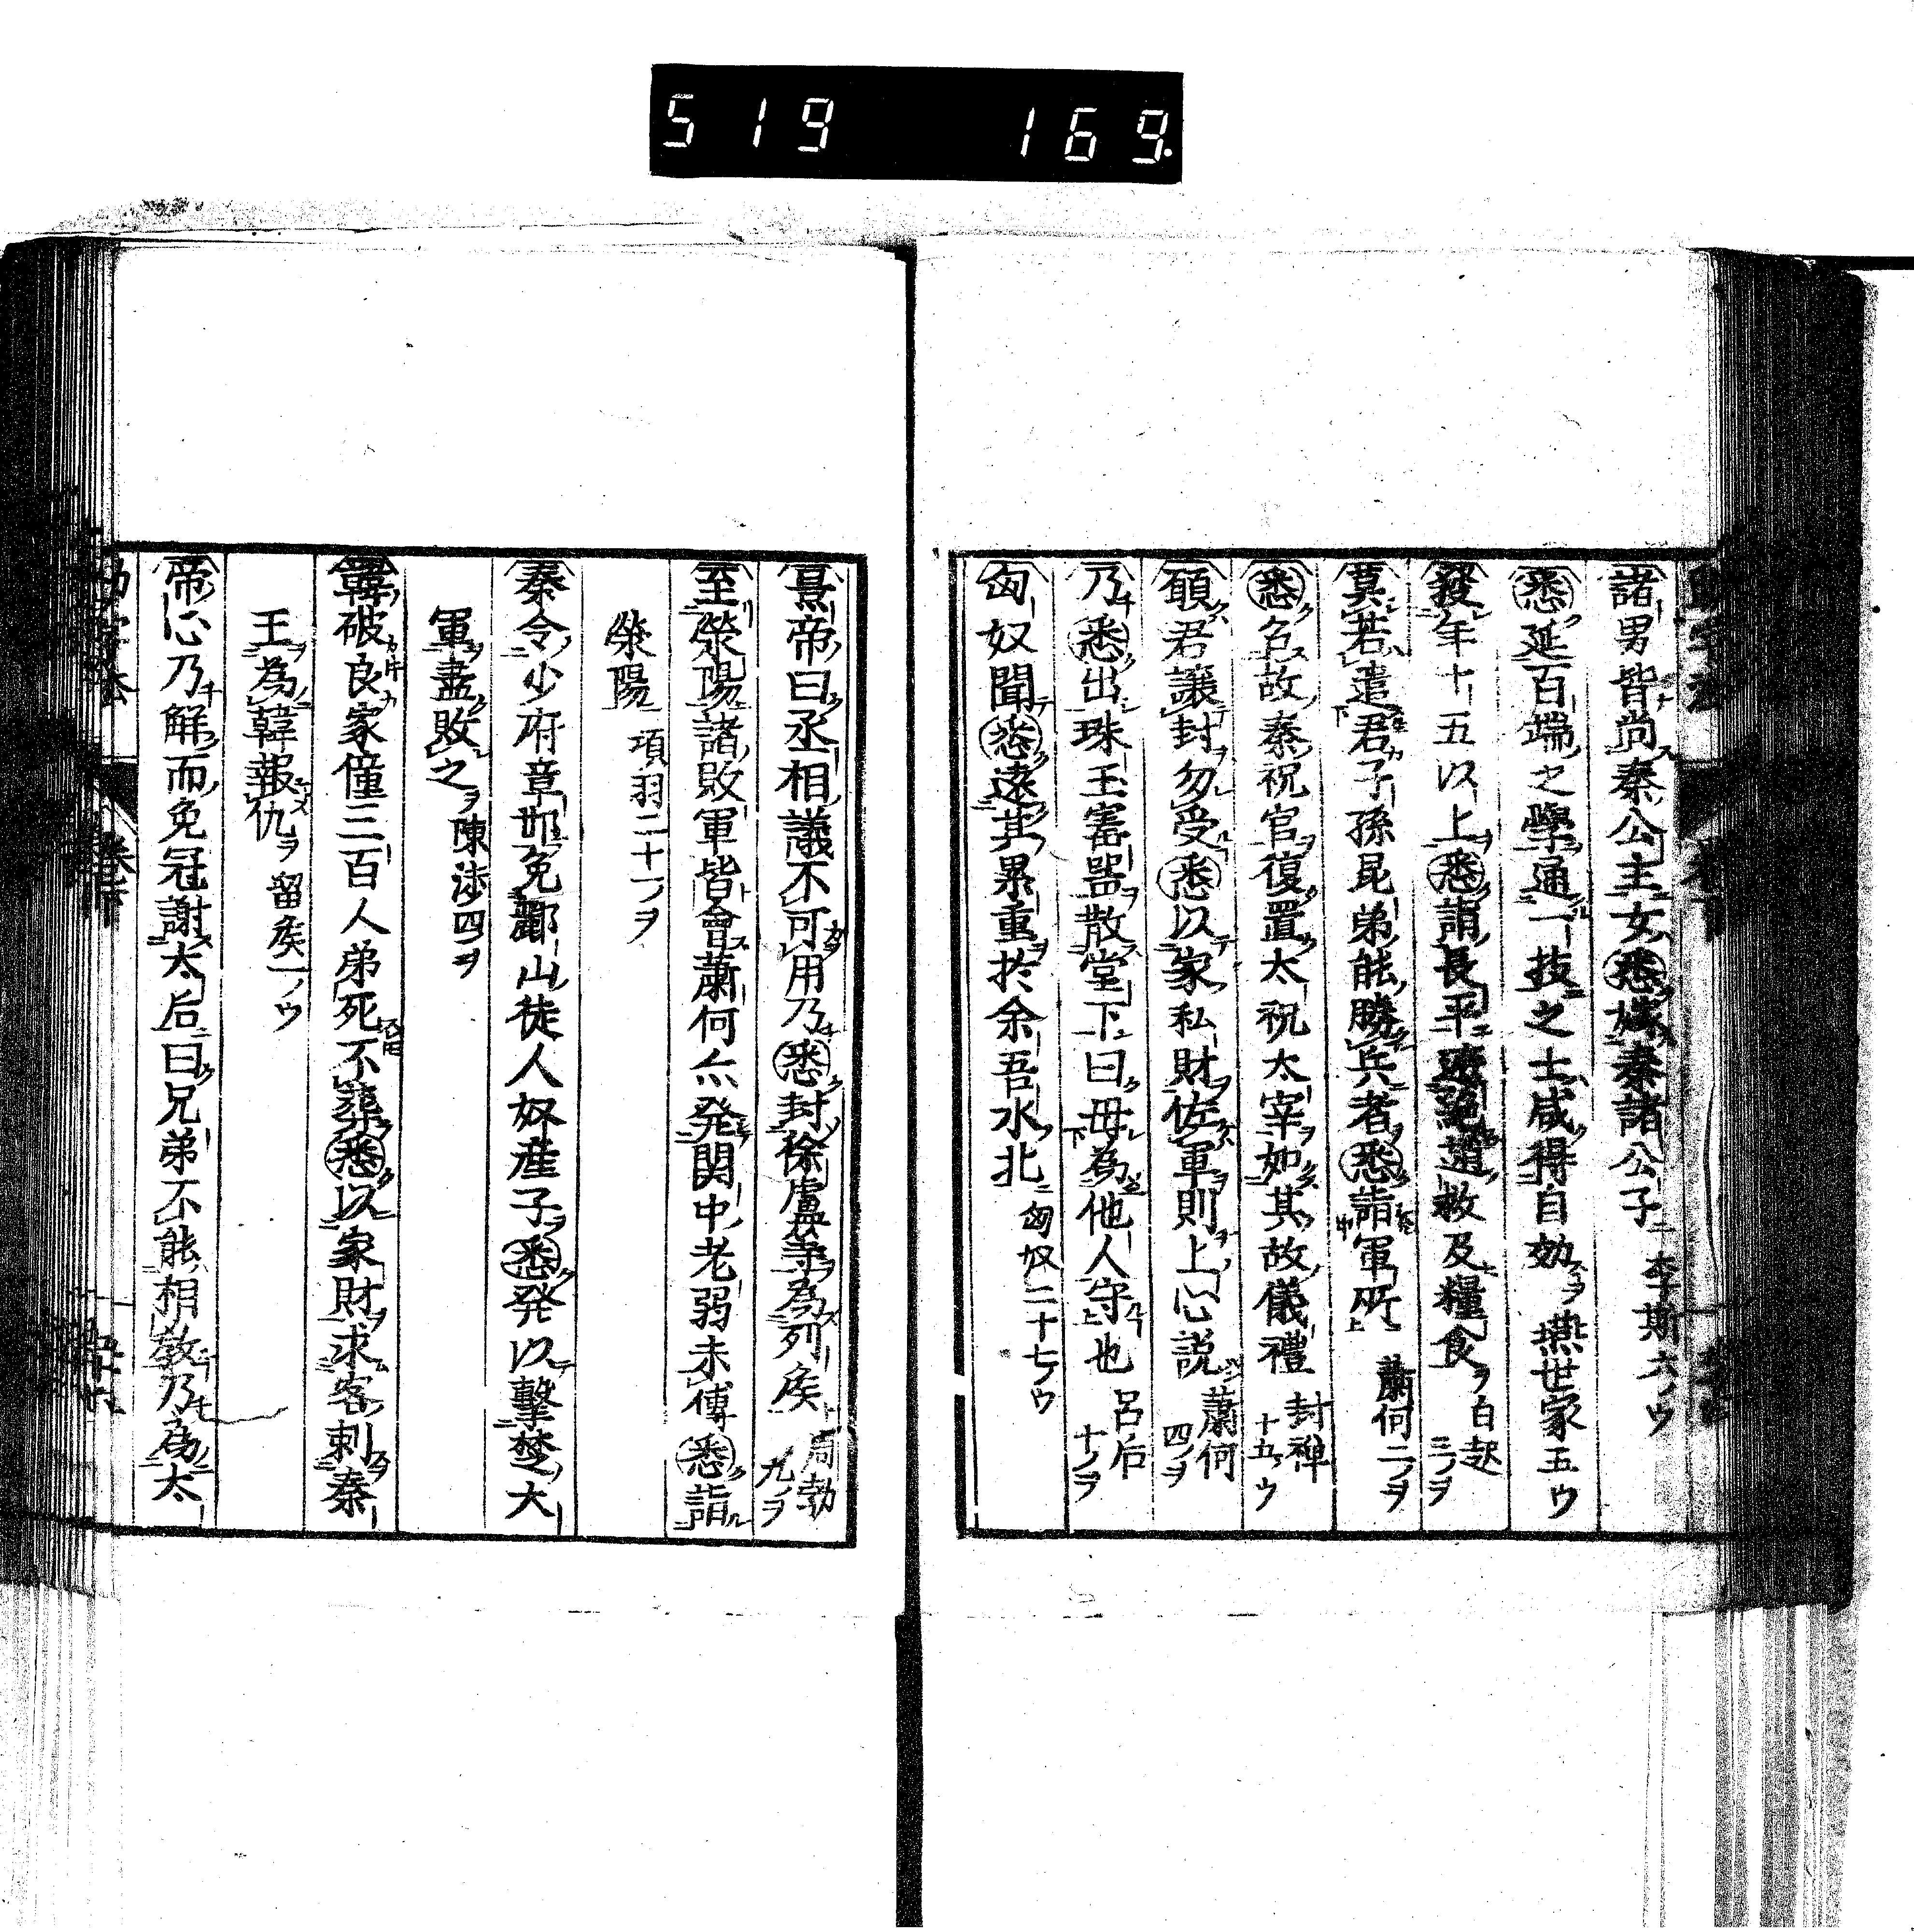 519 169.
諸男皆尚秦公主女悉嫁秦諸公子 李斯六ノウ
悉延百端之學通一技之士咸得自効 燕世家五ウ
發年十五以上悉詣長平遮絶趙救及糧食 白起三ノヲ
莫若遣君子孫昆弟能勝兵者悉詣軍所 蕭何二ノヲ
悉名故秦祝官復置太祝太宰如其故儀禮 封禅十五ノウ
願君讓封勿受悉以家私財佐軍則上心説 蕭何四ノヲ
乃悉出珠玉寳噐散堂下曰毋為他人守也 呂后十ノヲ
匈奴聞悉遠其累重扵余吾水北 匈奴二十七ノウ
景帝曰丞相議不可用乃悉封徐盧等為列矦 周勃九ノヲ
至滎陽諸敗軍皆會蕭何亦発関中老弱未傅悉詣
滎陽 項羽二十一ノヲ
秦令少府章邯免酈山徒人奴産子悉発以擊楚大
軍盡敗之 陳渉四ノヲ
韓破良家僮三百人弟死不葬悉以家財求客刺秦
王為韓報仇 留矦一ノウ
帝心乃解而免冠謝太后曰兄弟不能相教乃為太